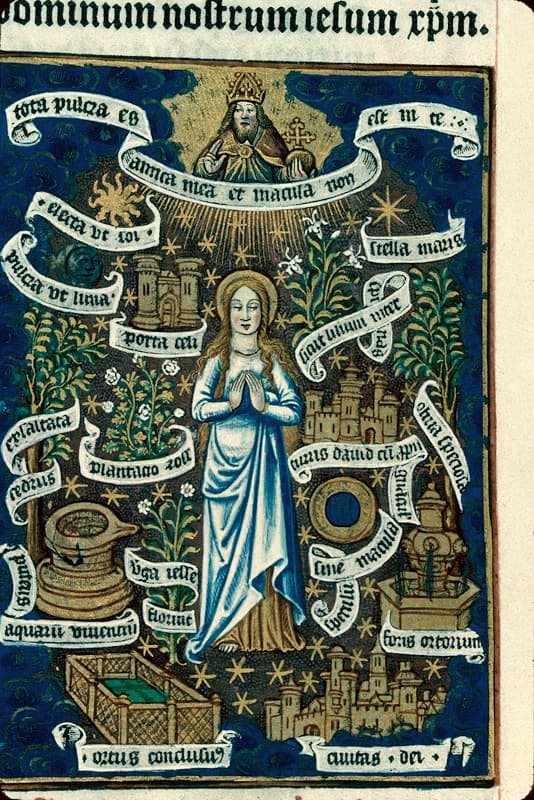 dominum nostrum iesum xp̄m.
tota pulcra es
amica mea et macula non
est in te
electa vt sol
stella maris
pulcra vt luna
sicut lilium inter
porta celi
exaltata
cedrus
plantatio rose
turris dauid cū
oliua speciosa
puteus
aquarū viuenciū
v̄ga iesse
floruit
speculū
sine macula
fons ortorum
ortus conclusus
ciuitas dei